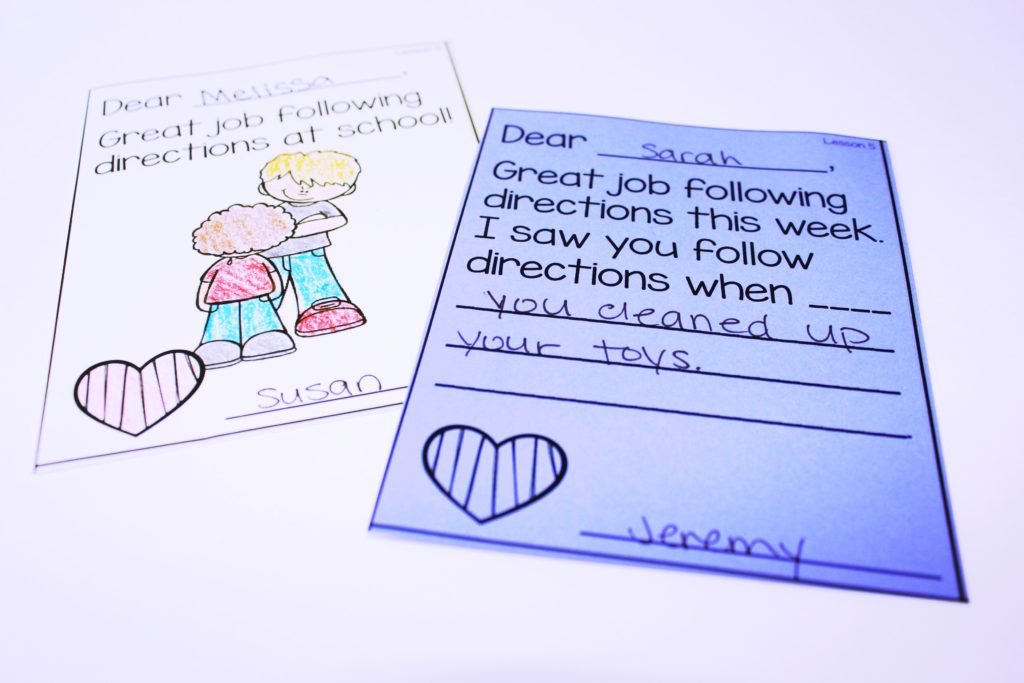 Lesson 5
Dear Melissa,
Great job following
directions at school!
Susan
Lesson 5
Dear Sarah,
Great job following
directions this week.
I saw you follow
directions when ____
you cleaned up
your toys.
Jeremy